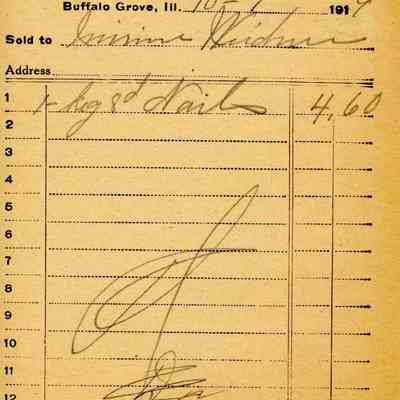 Buffalo Grove, Ill. 10- 1914
Sold to
Address
1 1 keg 8d Nails 4.60
2
3
4
5
6
7
8
9
10
11
12